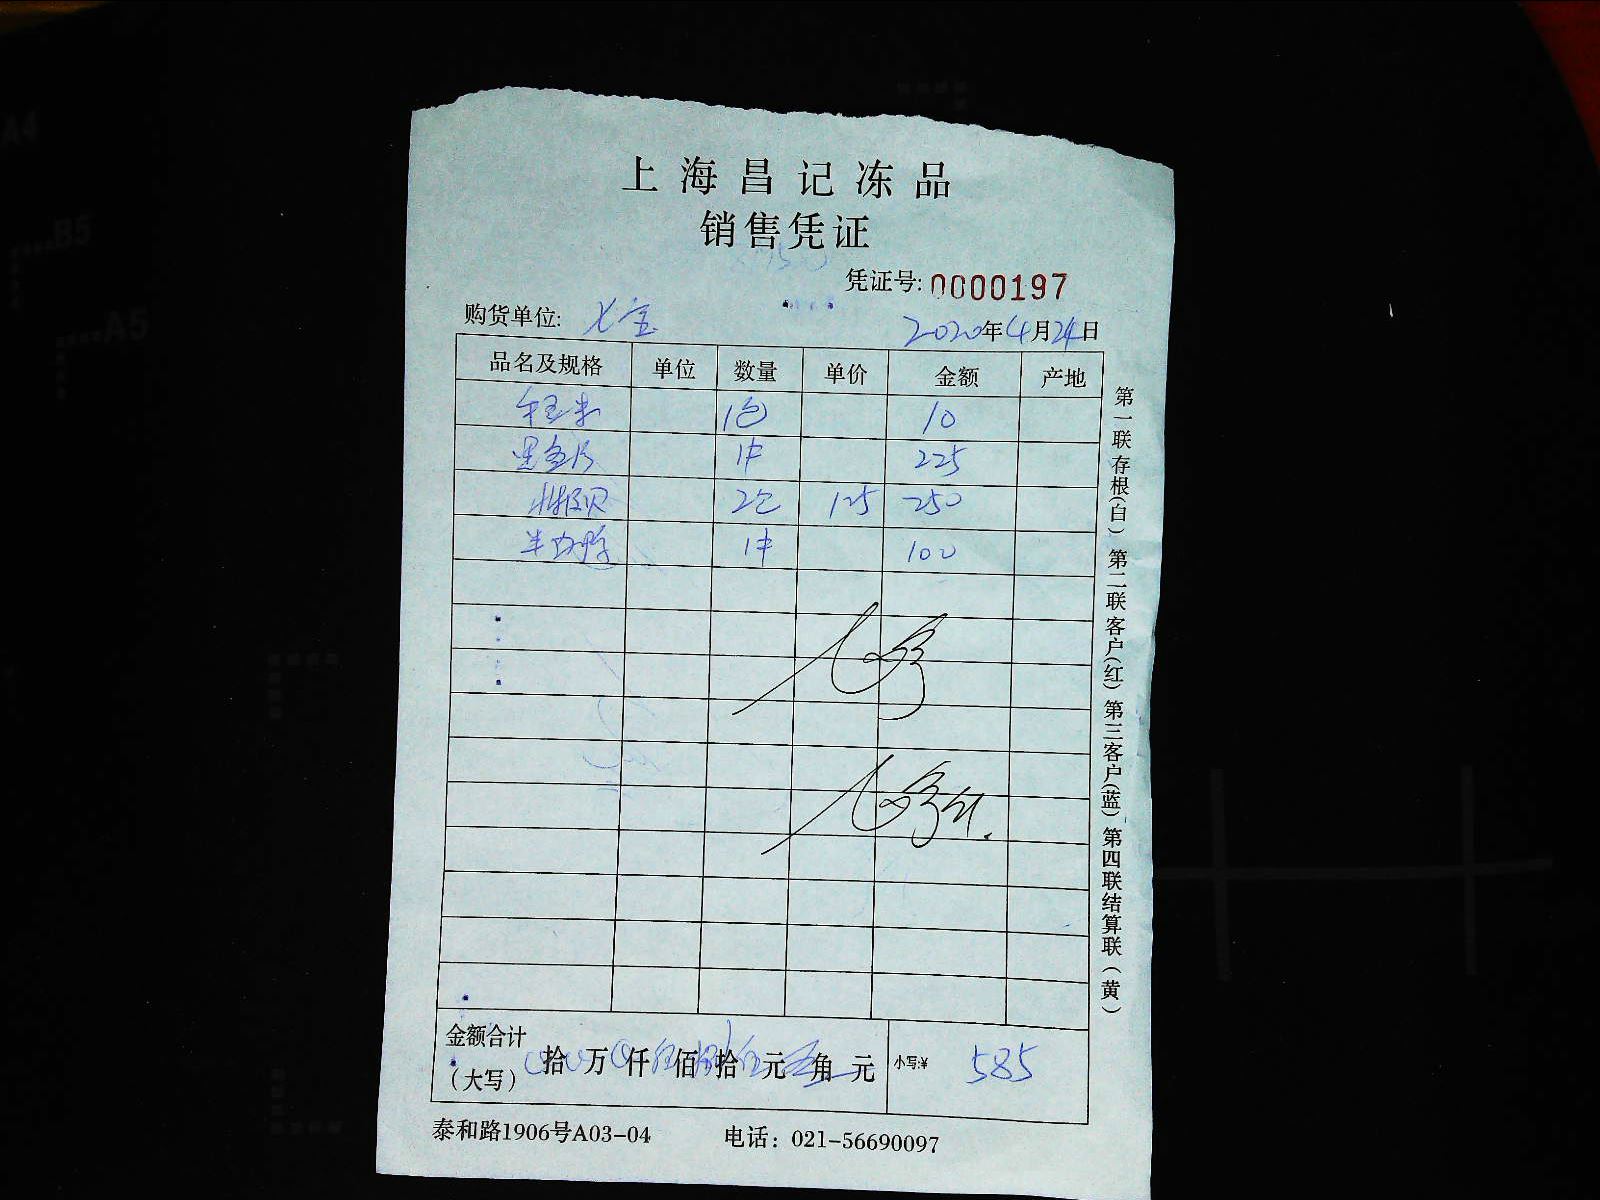 上海昌记冻品
销售凭证
凭证号: 0000197
购货单位: 七宝
2020年4月24日
品名及规格 单位 数量 单价 金额 产地
1包 10
1件 225
2包 125 250
1件 100
金额合计
(大写) 拾 万 仟 伍 佰 捌 拾 伍 元 角 元 小写:¥ 585
泰和路1906号A03-04 电话: 021-56690097
第一联存根(白) 第二联客户(红) 第三客户(蓝) 第四联结算联(黄)
A4
B5
A5